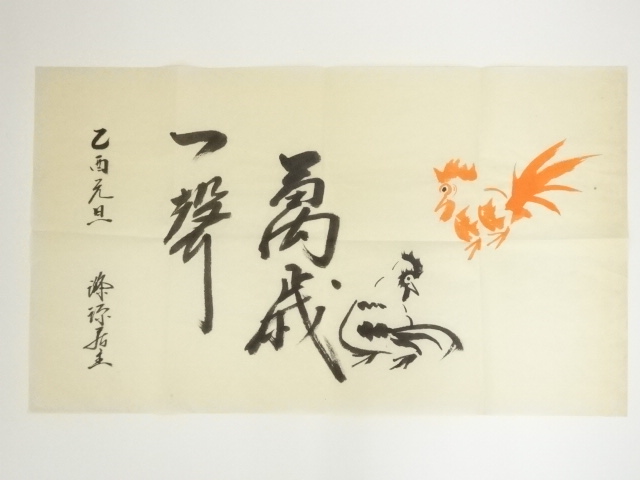 萬歳
一聲
乙酉元旦
居士